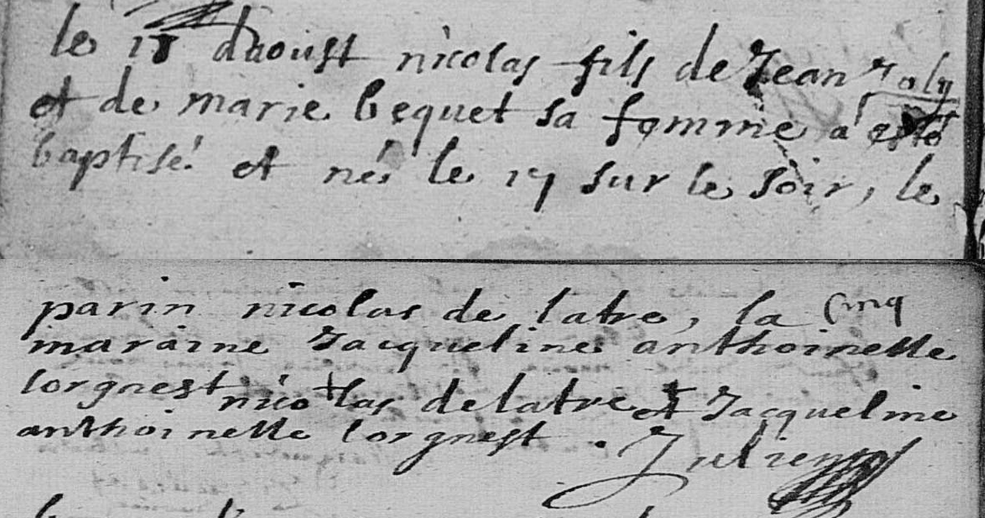 le 18 daoust nicolas fils de Jean Joly
et de marie bequet sa femme a esté
baptisé et né le 17 sur le soir, le
parin nicolas de latre, la Cinq
maraine Jacqueline anthoinette
lorgnest nicolas delatre et Jacqueline
anthoinette lorgnest . Julien